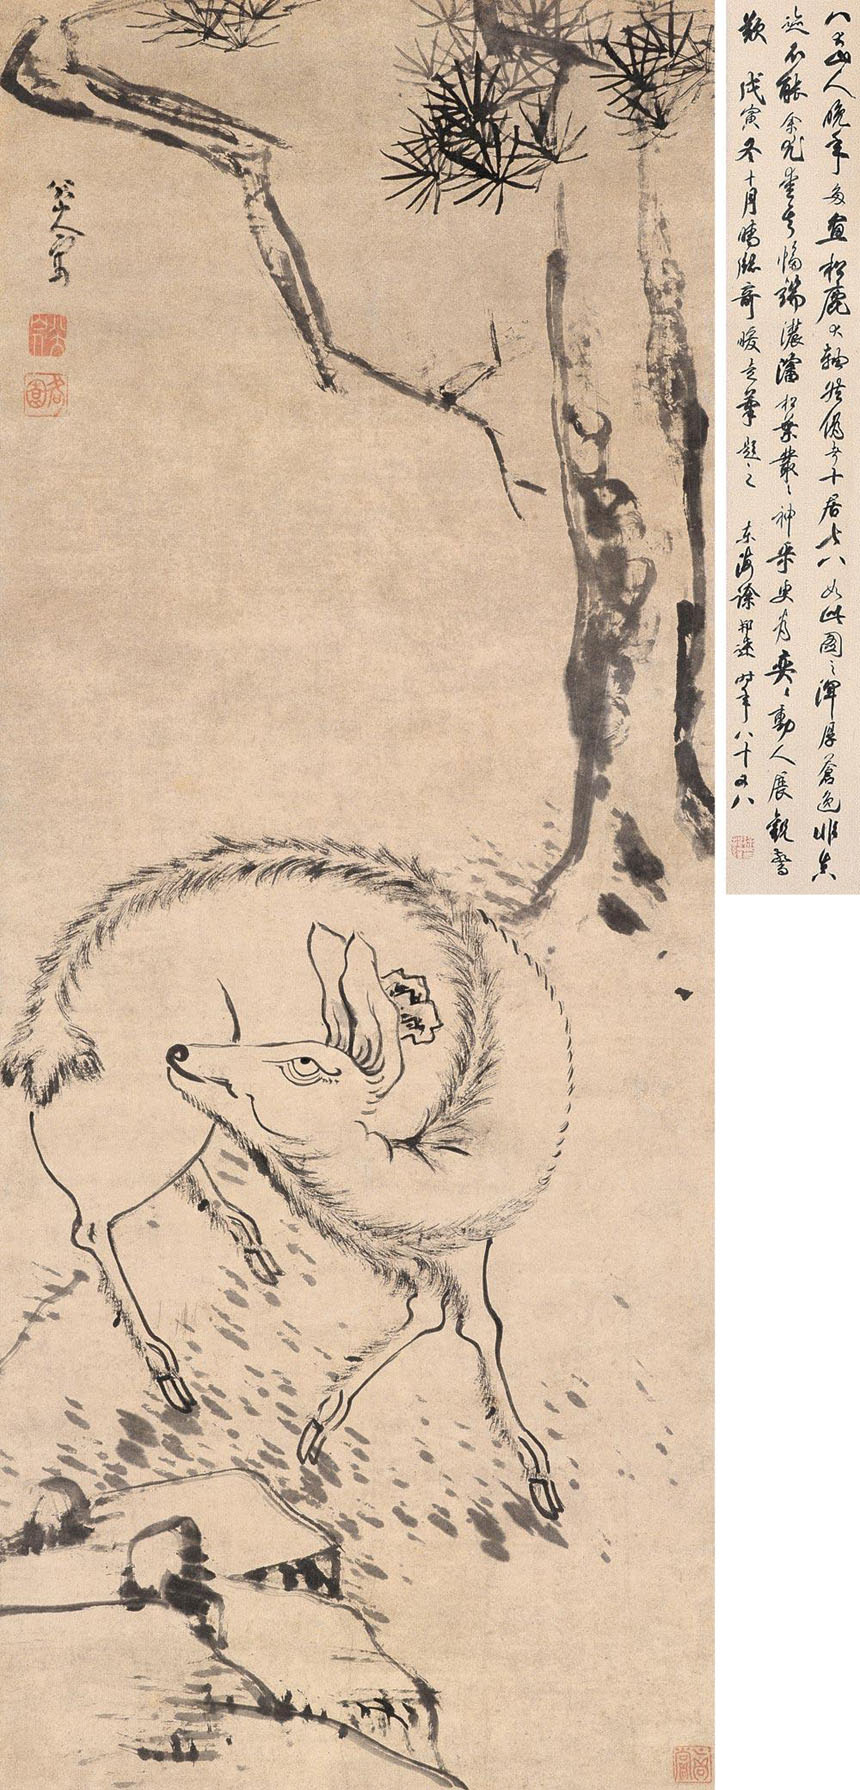 八大山人晚年多畫松鹿大軸然偽者十居七八如此圖之渾厚蒼逸非真
迹不能余尤喜其幅端濃瀋松葉叢〻神采更為奕〻動人展觀驚
歎 戊寅冬十月晴熙奇暖走筆題之 东海徐邦達時年八十又八
八大山人寫
八大山人